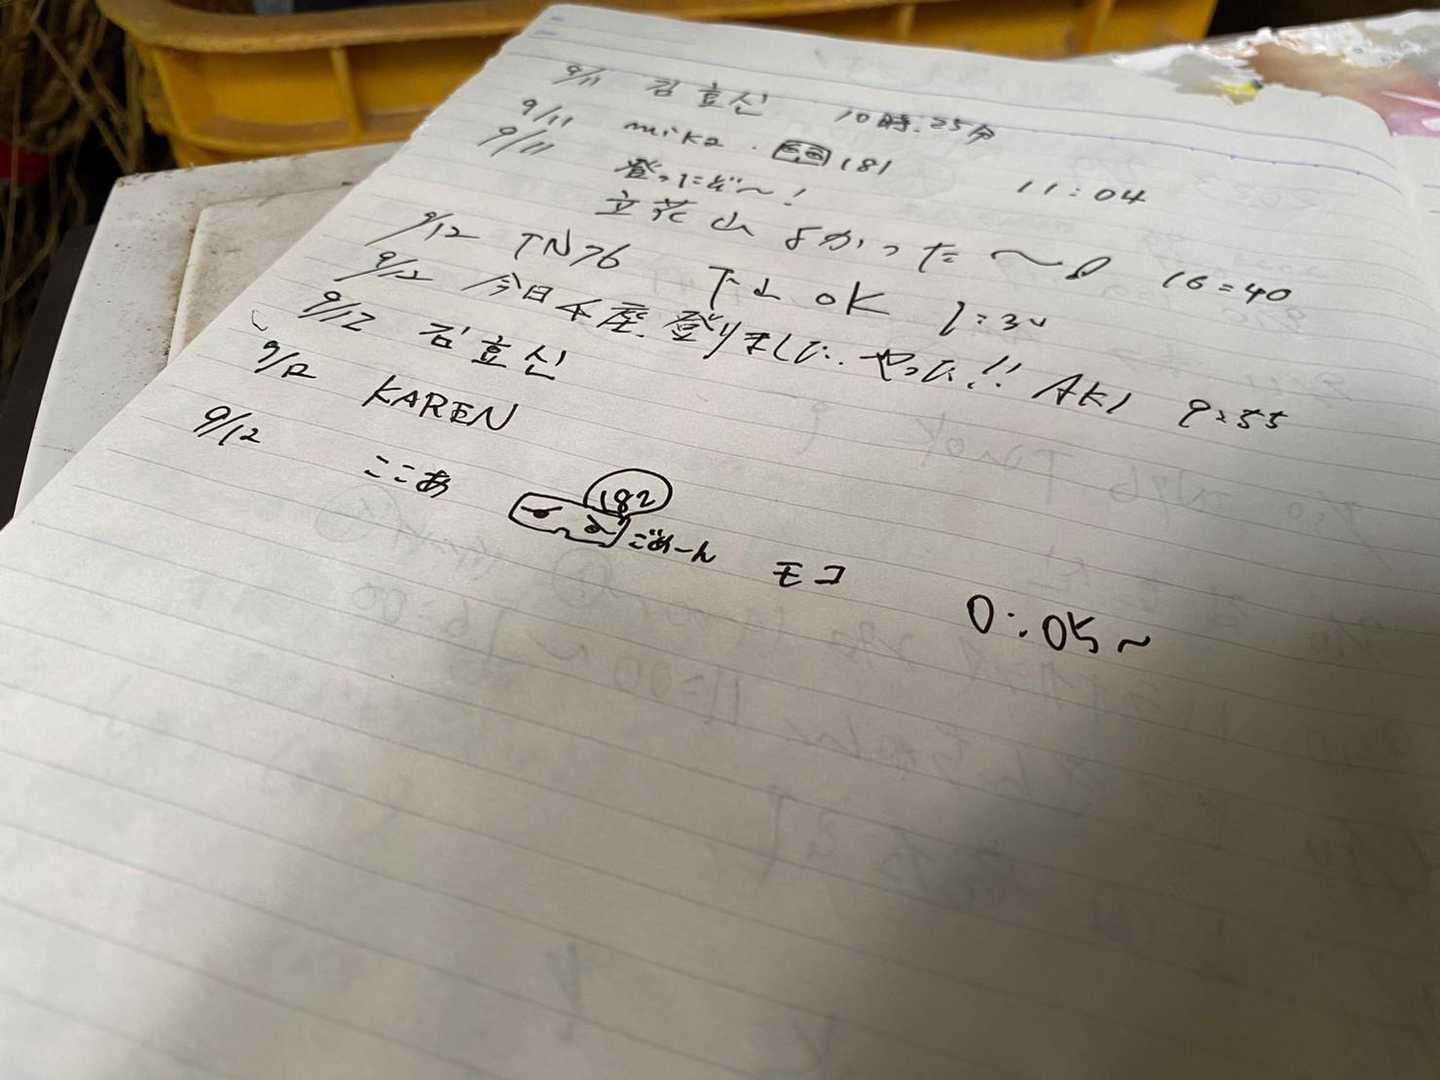 9/11 김효신 10時.25分
9/11 mika. 181 11:04
9/11 登ったぞ〜!
立花山 よかった〜 16=40
9/12 TN76 下山 OK 7:30
9/12 今日4座.登りました.やった!! AKI 9:55
9/12 김효신
9/12 KAREN
9/12 ここあ 182 ごめーん モコ 0:05~